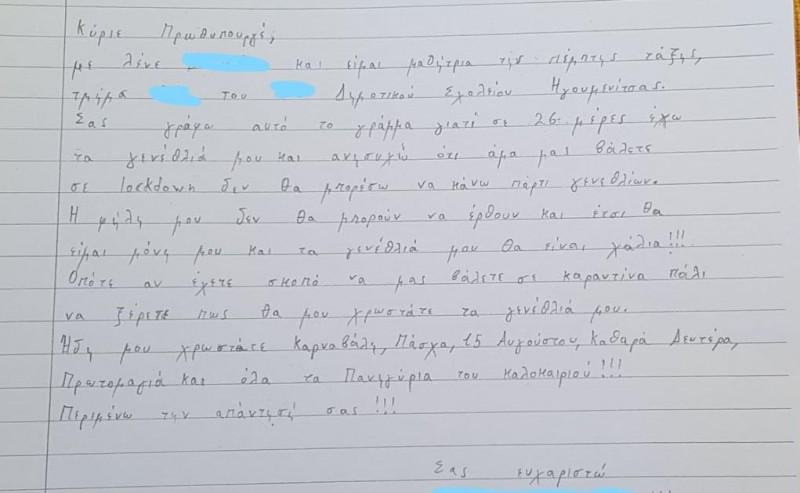 Κύριε Πρωθυπουργέ,
με λένε και είμαι μαθήτρια της πέμπτης τάξης,
τμήμα του Δημοτικού Σχολείου Ηγουμενίτσας.
Σας γράφω αυτό το γράμμα γιατί σε 26 μέρες έχω
τα γενέθλιά μου και ανησυχώ ότι άμα μας βάλετε
σε lockdown δεν θα μπορέσω να κάνω πάρτι γενεθλίων.
Η φήλη μου δεν θα μπορούν να έρθουν και έτσι θα
είμαι μόνη μου και τα γενέθλιά μου θα είναι χάλια!!!
Οπότε αν έχετε σκοπό να μας βάλετε σε καραντίνα πάλι
να ξέρετε πως θα μου χρωστάτε τα γενέθλιά μου.
Ήδη μου χρωστάτε Καρναβάλη, Πάσχα, 15 Αυγούστου, Καθαρά Δευτέρα,
Πρωτομαγιά και όλα τα Πανηγύρια του καλοκαιριού!!!
Περιμένω την απάντησή σας!!!
Σας ευχαριστώ